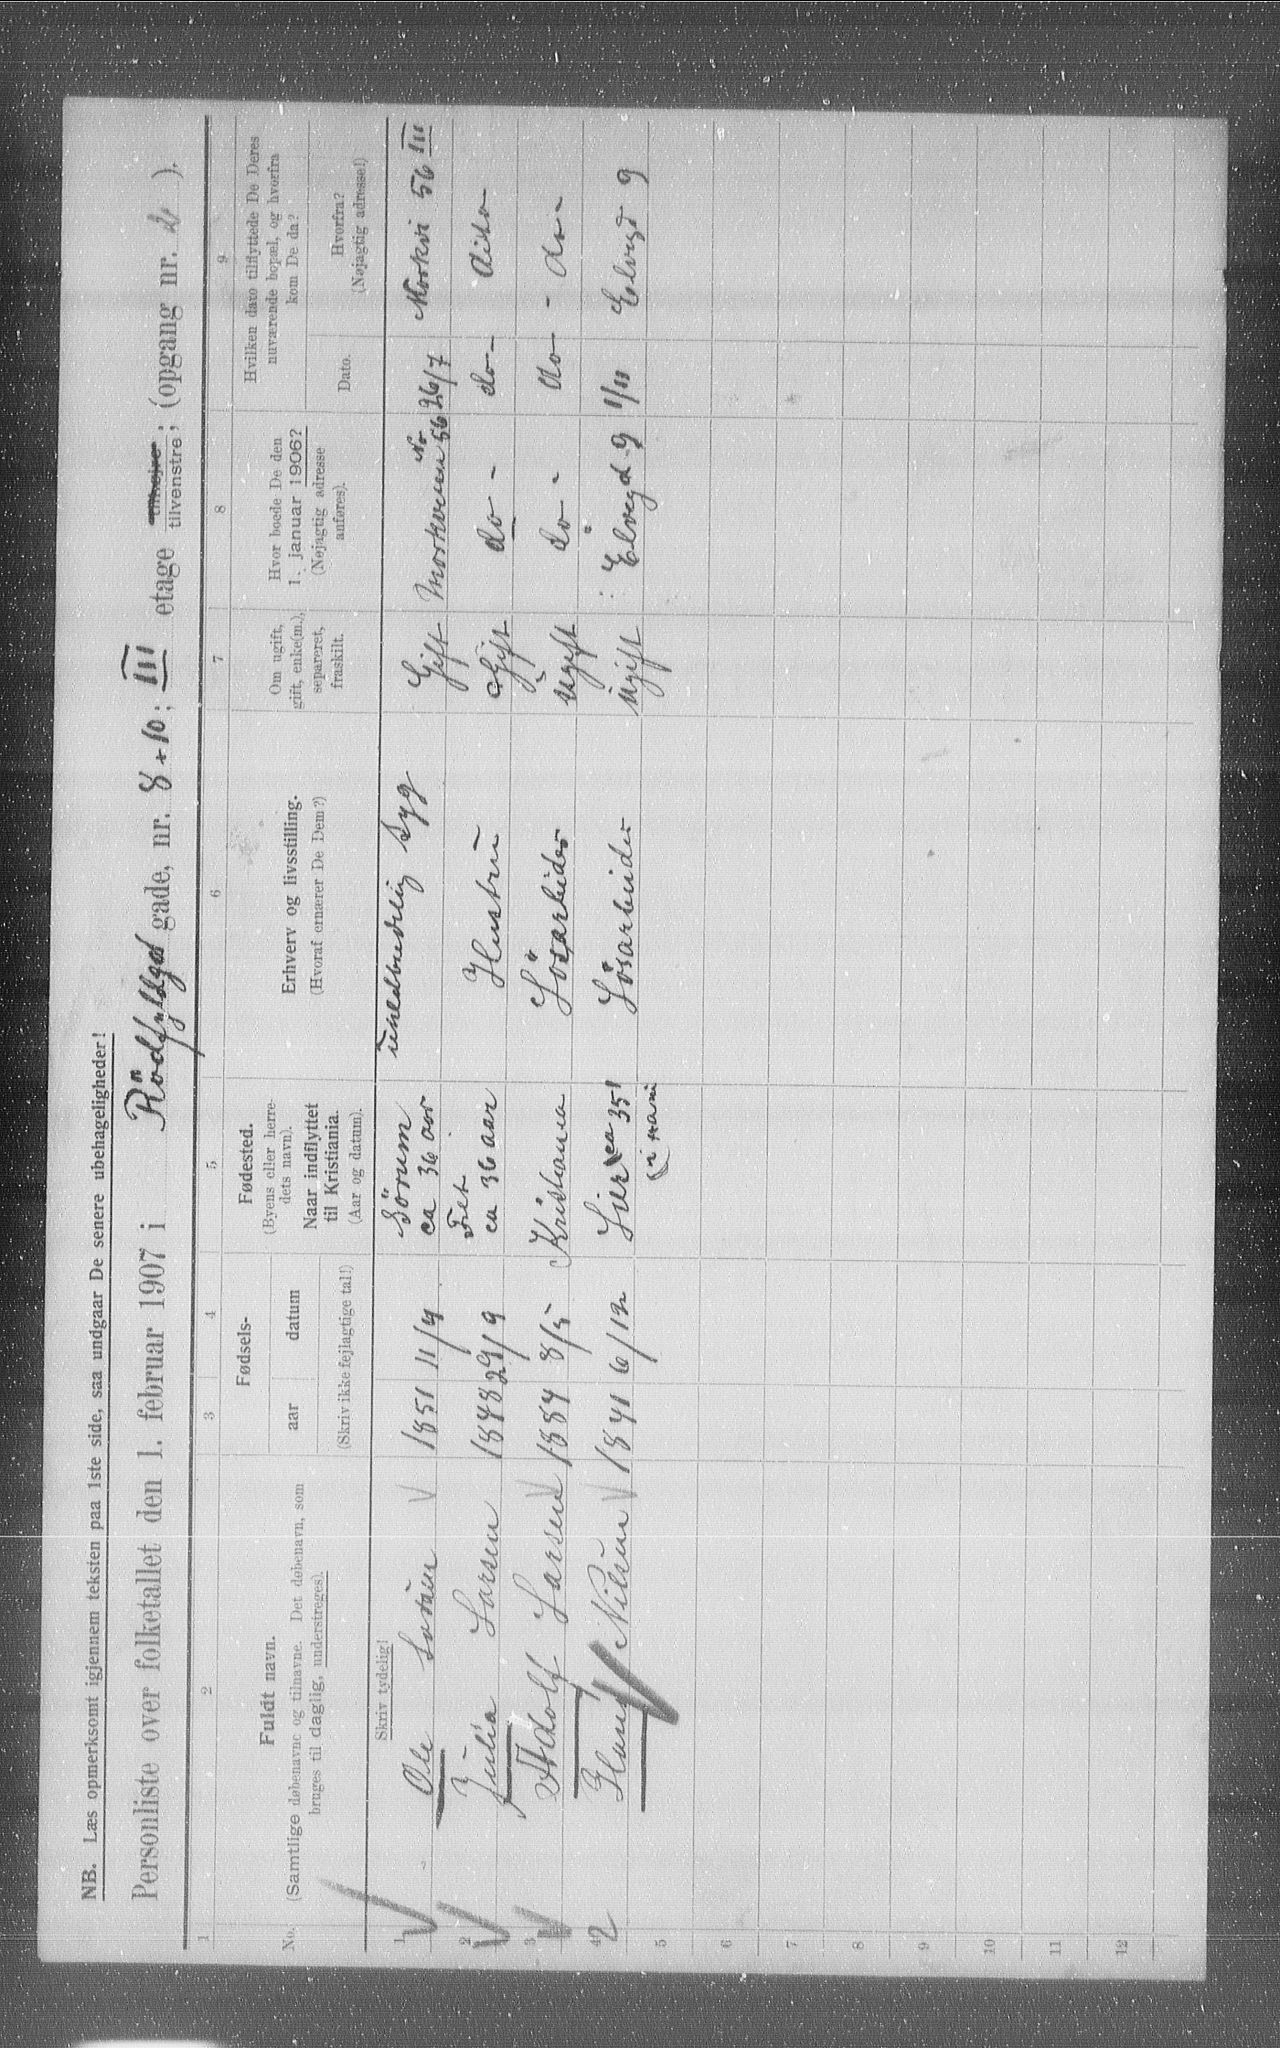 NB. Læs opmerksomt igjennem teksten paa 1ste side, saa undgaar De senere ubehageligheder!
Personliste over folketallet den 1. februar 1907 i Rödfyldgd gade, nr. 8 + 10; III etage tilhøjre tilvenstre; (opgang nr. 2).
1 2 3 4 5 6 7 8 9
No.
Fuldt navn.
(Samtlige døbenavne og tilnavne. Det døbenavn, som
bruges til daglig, understreges).
Fødsels-
aar datum
(Skriv ikke fejlagtige tal!)
Fødested.
(Byens eller herre-
dets navn).
Naar indflyttet
til Kristiania.
(Aar og datum).
Erhverv og livsstilling.
(Hvoraf ernærer De Dem?)
Om ugift,
gift, enke(m.),
separeret,
fraskilt.
Hvor boede De den
1. januar 1906?
(Nøjagtig adresse
anføres).
Hvilken dato tilflyttede De Deres
nuværende bopæl, og hvorfra
kom De da?
Dato.
Hvorfra?
(Nøjagtig adresse!)
Skriv tydelig!
1 Ole 1851 11/4 Sörum ca 36 aar uhelbredelig syg Gift No 56 26/7 56 III
2 Julia Larsen 1848 29/9 Fet ca 36 aar Hustru Gift do - do - dito
3 Adolf Larsen 1884 8/5 Kristiania Lösarbeider Ugift do - do - do -
4 2 Hans Nilsen 1841 6/12 Lier ca 35 Lösarbeider Ugift Elvegd 9 1/11 Elvegd 9
5
6
7
8
9
10
11
12